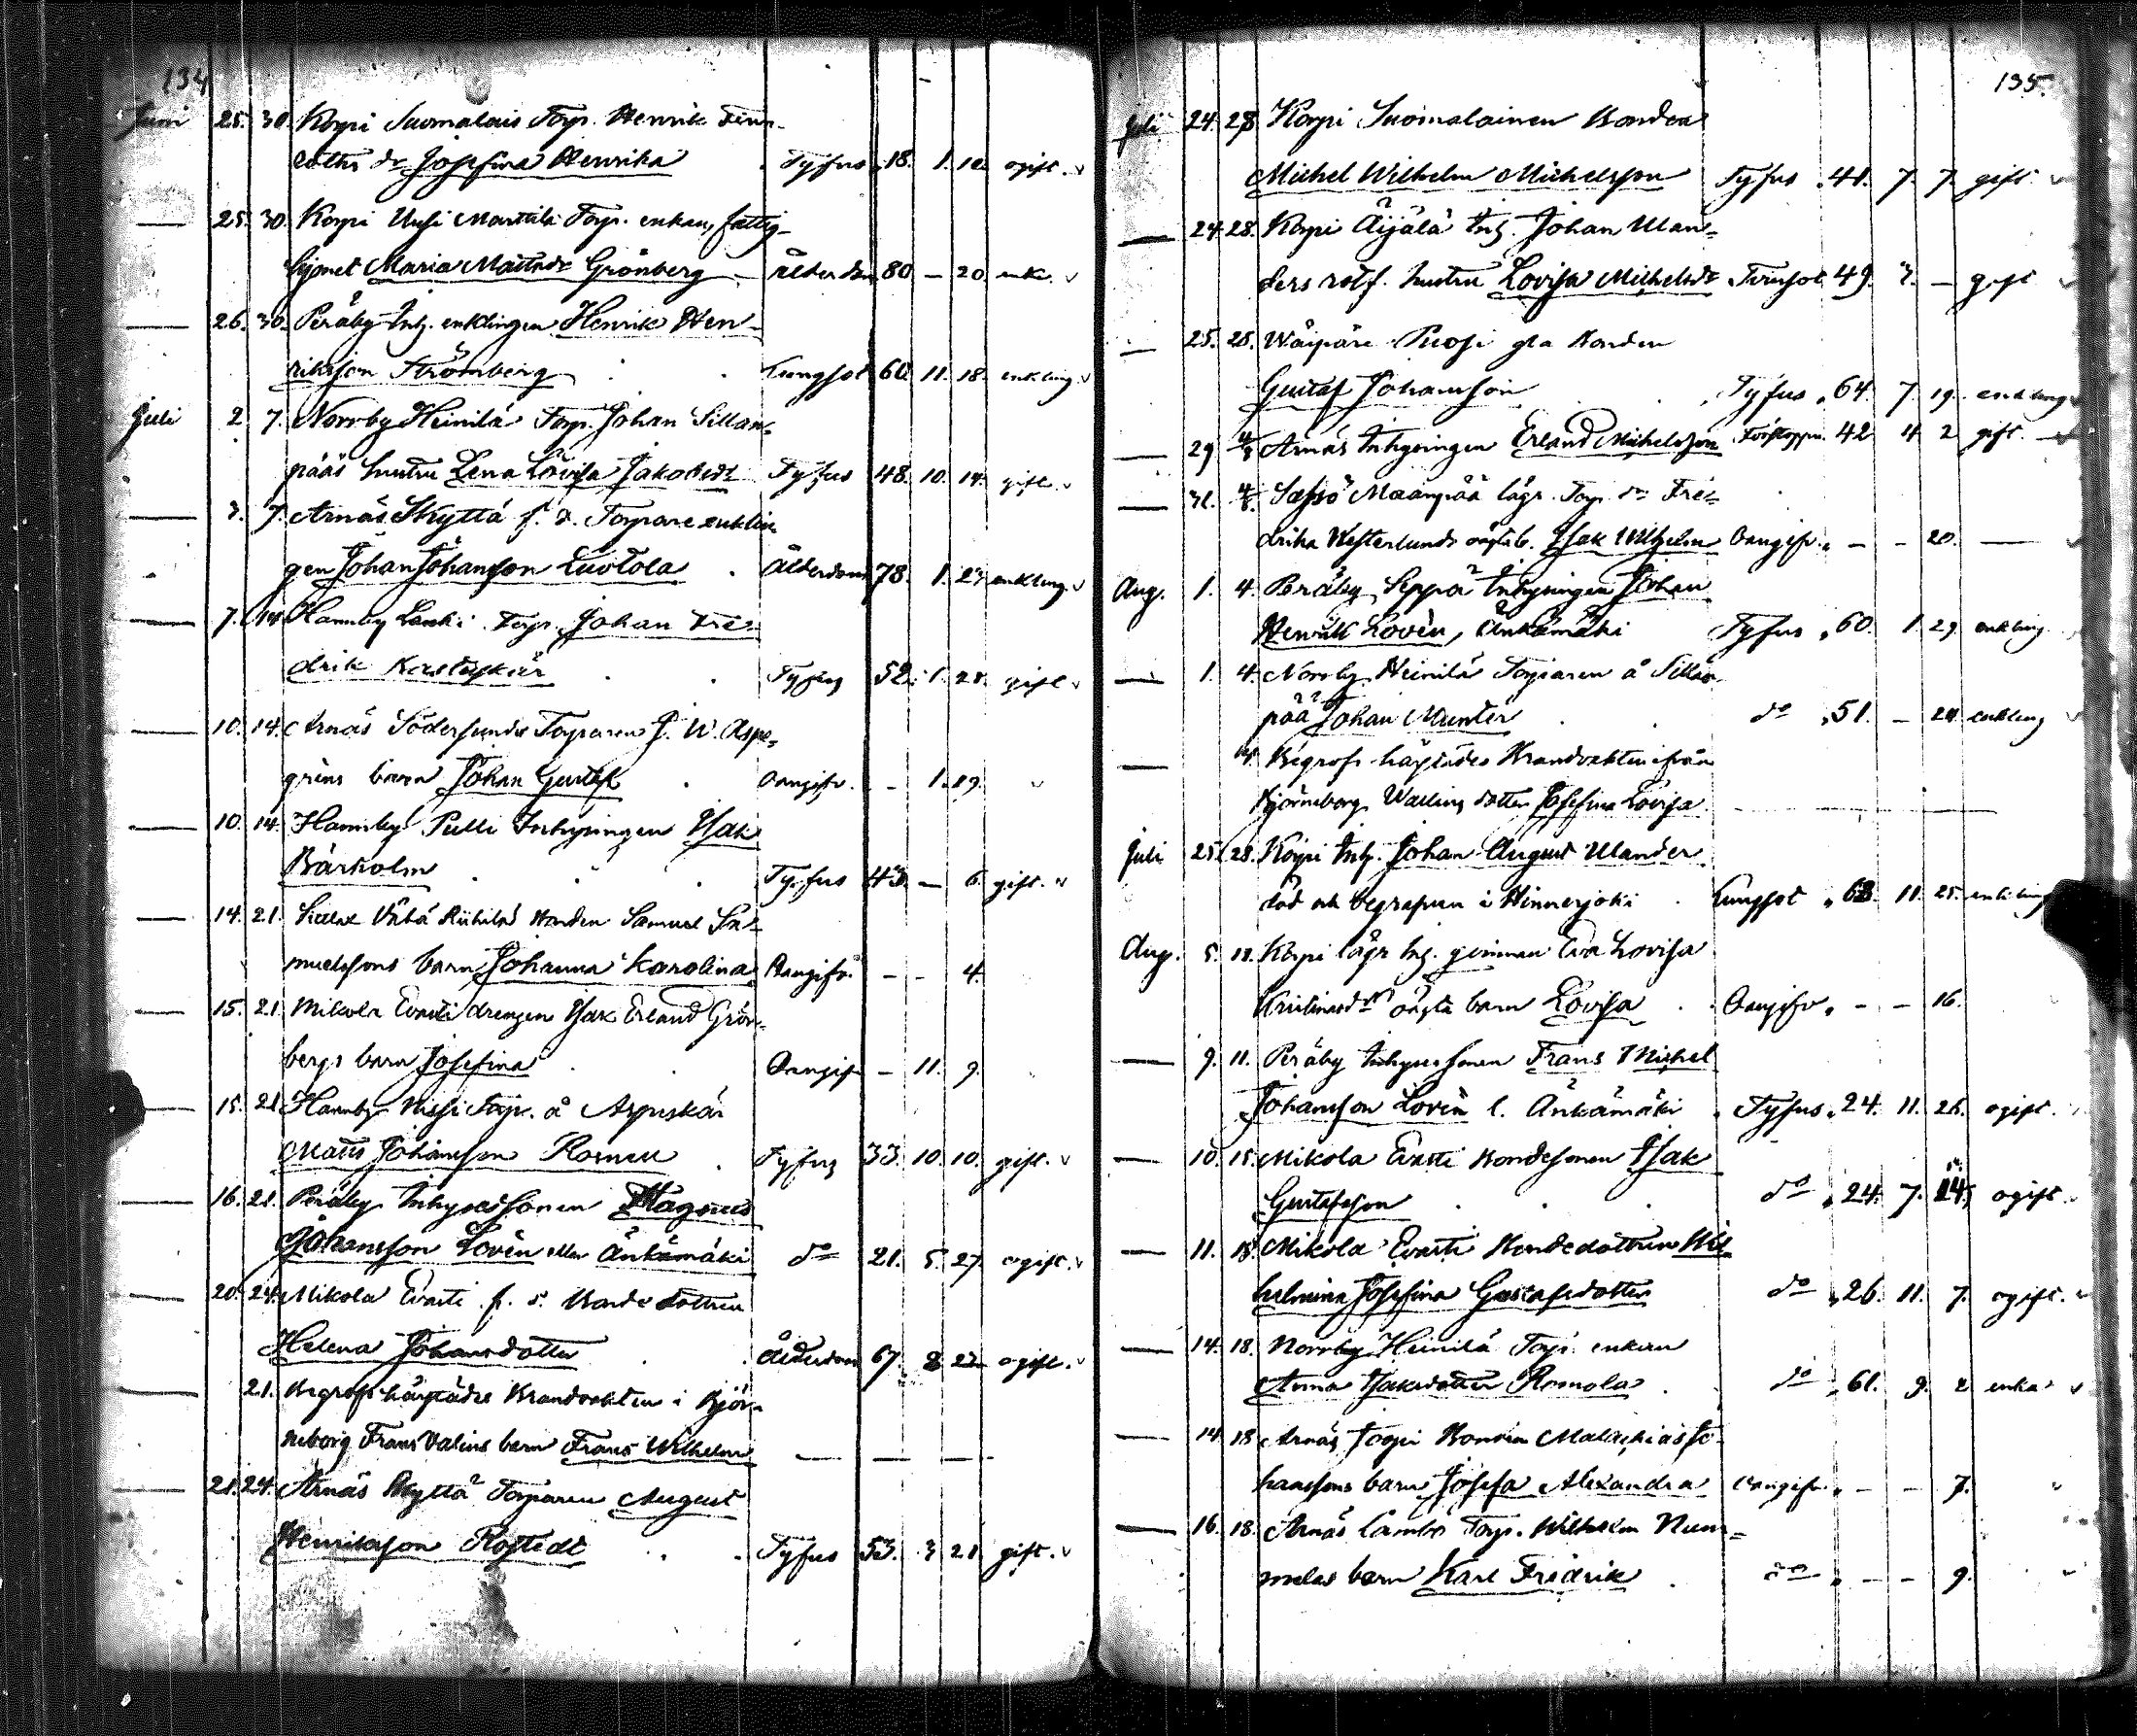 134
Juni 25. 30. Korpi Suomalais Torp. Henrik Finn-
roths dr Josefina Henrika Tyfus 18. 1. 10. ogift.
— 25. 30. Korpi Uusi Marttila Torp. enkan, fattig-
hjonet Maria Mattsdr Grönberg Ålderdom 80 — 20. enk.
— 26. 30. Peräby Inh. enklingen Henrik Hen-
riksson Strömberg Lungsot 60. 11. 18. enkling
Juli 2. 7. Norrby Heinilä Torp. Johan Sillan-
pääs hustru Lena Lovisa Jakobsdr Tyfus 48. 10. 14. gift.
— 3. 7. Arnäs Kryttä f. d. Torpare enklin
gen Johan Johansson Luotola Ålderdom 78. 1. 23 enkling
— 7. 14 Hannby Lanki Torp. Johan Fre-
drik Tyfus 52. 1. 28. gift
— 10. 14. Arnäs Södersunds Torparen J. W. Aspe-
gréns barn Johan Gustaf Oangifv. — 1. 19.
— 10. 14. Hannby Pulli Inhysingen Isak
Bärkolm Tyfus 43. — 6. gift.
— 14. 21. Vähä Riihilä bonden Samuel Sa-
muelssons barn Johanna Karolina Oangifv. — — 4.
— 15. 21. Mikola Evasti drengen Isak Erland Grön-
bergs barn Josefina Oangifv — 11. 9.
— 15. 21 Hannby Nissi Torp. å Aspuskär
Matts Johansson Tyfus 33. 10. 10. gift.
— 16. 21. Peräby Inhysessonen Magnus
Johansson Lovén eller Änkämäki do 21. 5. 27. ogift.
— 20. 24. Mikola Evasti f. d. Bondedottren
Helena Johansdotter Ålderdom 67. 8 22 ogift.
— 21. Begrofs härstädes Brandvakten i Björ-
neborg Frans Valins barn Frans Wilhelm — — —
— 21. 24. Arnäs Kryttä Torparen August
Henriksson Rostedt Tyfus 53. 3 21. gift.
135.
Juli 24. 28 Korpi Suomalainen Bonden
Michel Wilhelm Michelsson Tyfus 41. 7. 7. gift.
— 24. 28. Korpi Äijälä Inh. Johan Ulan-
ders rotf. hustru Lovisa Michelsdr 49. 3. — gift
— 25. 28. Wäipäre Puosi gla Bonden
Gustaf Johansson Tyfus 64. 7. 19. enkling
— 29 4/8 Arnäs Inhysingen Erland Michelsson 42 4 2 gift.
— 31. 4/8. Maanpää lägr. Torp. dr Fre-
drika Westerlunds oägta b. Isak Wilhelm Oangifv. — — 20. —
Aug. 1. 4. Peräby Seppä Inhysingen Johan
Henrik Lovén, Änkämäki Tyfus 60. 1. 29. enkling
— 1. 4. Norrby Heinilä Torparen å Sillan
pää Johan Munter do 51. — 24 enkling
— 4. Begrofs härstädes Brandvakten ifrån
Björneborg Wallins dotter Josefina Lovisa —
Juli 25. 28. Korpi Inh. Johan August Ulander
död och begrafven i Hinnerjoki Lungsot 68. 11. 25. enkling
Aug. 5. 11. Korpi lägr Inh. qvinnan Eva Lovisa
Kristinasdrs oägta barn Lovisa Oangifv. — — 16.
— 9. 11. Peräby Inhysessonen Frans Michel
Johansson Lovén l. Änkämäki Tyfus 24. 11. 26. ogift.
— 10. 15. Mikola Evasti Bondesonen Isak
Gustafsson do 24. 7. 14. ogift.
— 11. 18. Mikola Evasti Bondedottren Wil
helmina Josefina Gustafsdotter do 26. 11. 7. ogift.
— 14. 18. Norrby Heinilä Torp. enkan
Anna Isaksdotter Romola do 61. 9. 2 enka
— 14 18 Arnäs Torpi Bonden Malachias Jo-
hanssons barn Josefa Alexandra Oangifv. — — 7.
— 16. 18. Arnäs Lambo Torp. Wilhelm Num-
melas barn Karl Fredrik do — — 9.